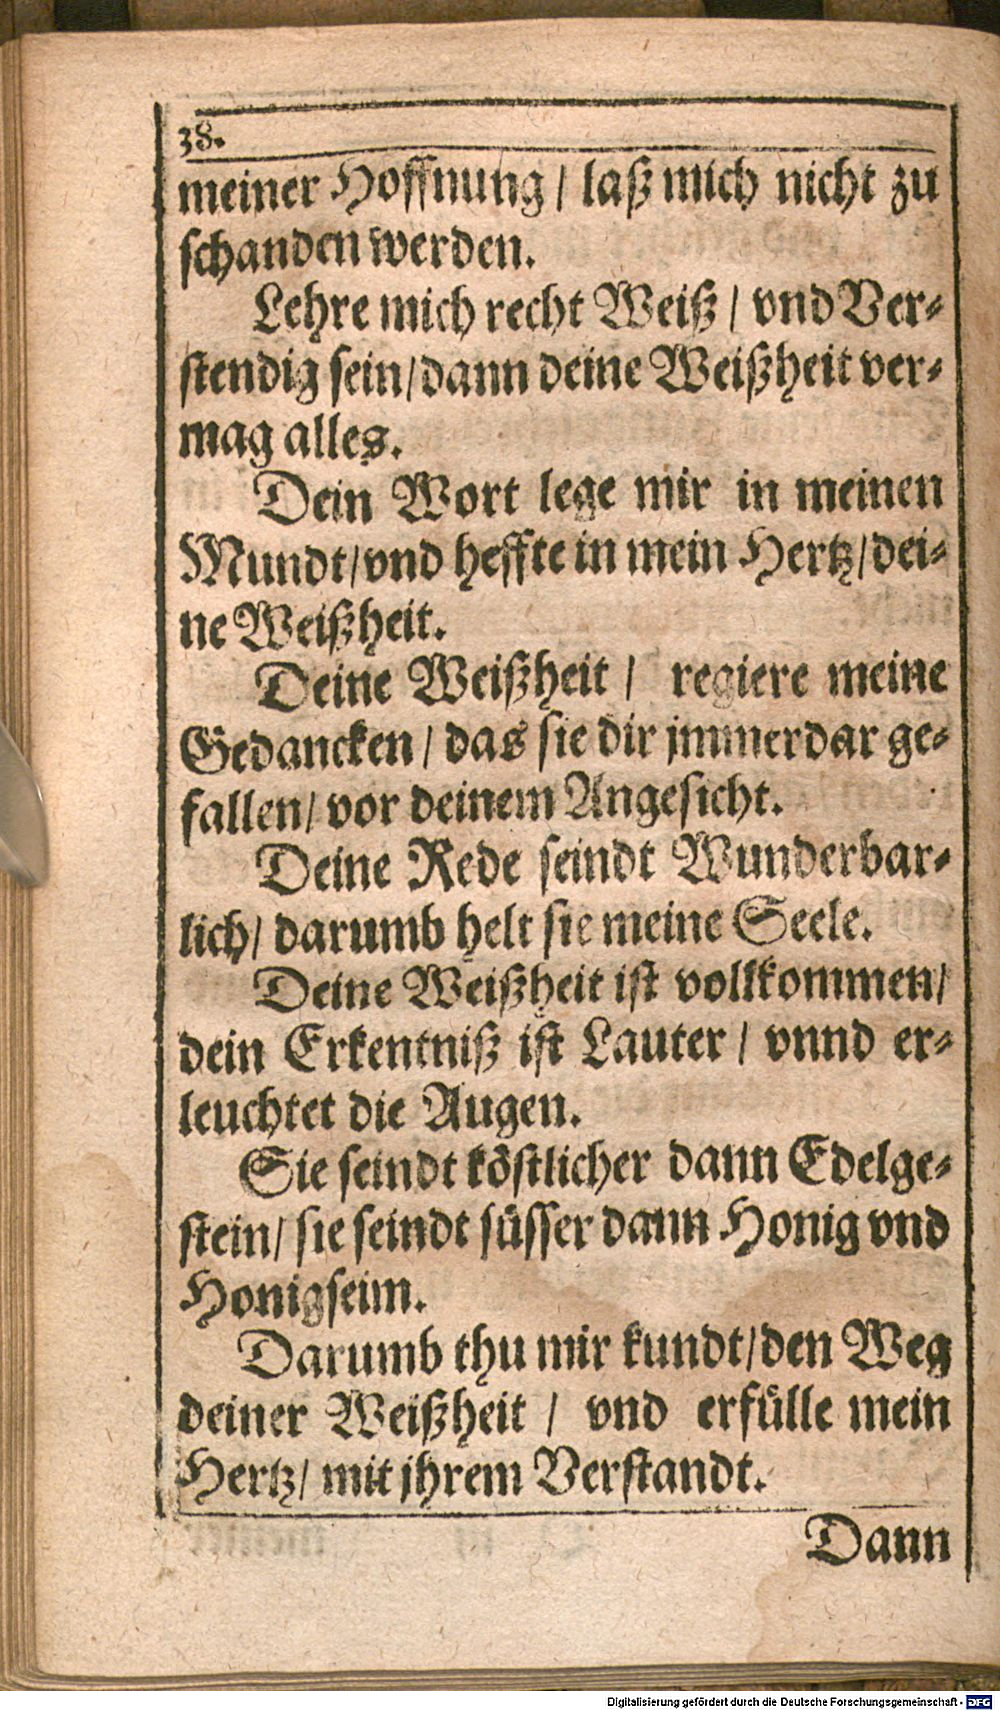 38.
meiner Hoffnung / laß mich nicht zu
schanden werden.
Lehre mich recht Weiß / vnd Ver-
stendig sein/dann deine Weißheit ver-
mag alles.
Dein Wort lege mir in meinen
Mundt/vnd heffte in mein Hertz/dei-
ne Weißheit.
Deine Weißheit / regiere meine
Gedancken / das sie dir jmmerdar ge-
fallen/ vor deinem Angesicht.
Deine Rede seindt Wunderbar-
lich/ darumb helt sie meine Seele.
Deine Weißheit ist vollkommen/
dein Erkentniß ist Lauter / vnnd er-
leuchtet die Augen.
Sie seindt köstlicher dann Edelge-
stein/ sie seindt süsser dann Honig vnd
Honigseim.
Darumb thu mir kundt/den Weg
deiner Weißheit / vnd erfülle mein
Hertz/ mit jhrem Verstandt.
Dann
Digitalisierung gefördert durch die Deutsche Forschungsgemeinschaft - DFG